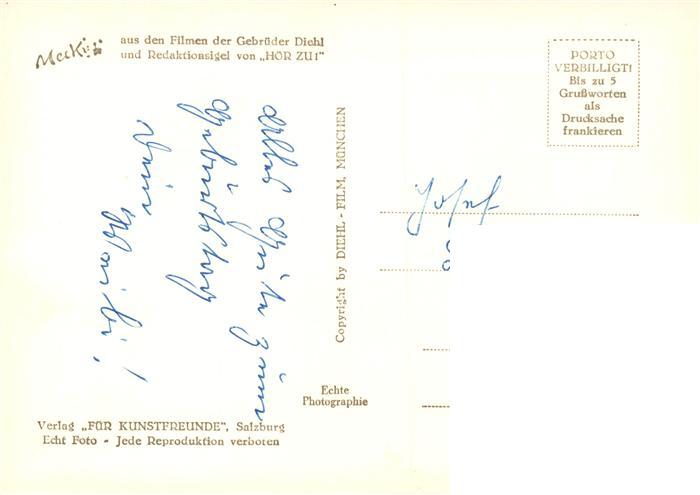 Mecki
aus den Filmen der Gebrüder Diehl
und Redaktionsigel von „HÖR ZU!"
PORTO
VERBILLIGT!
Bis zu 5
Grußworten
als
Drucksache
frankieren
Alles Gute zum
Geburtstag
Dein
Copyright by DIEHL - FILM, MÜNCHEN
Josef
Echte
Photographie
Verlag „FÜR KUNSTFREUNDE", Salzburg
Echt Foto - Jede Reproduktion verboten